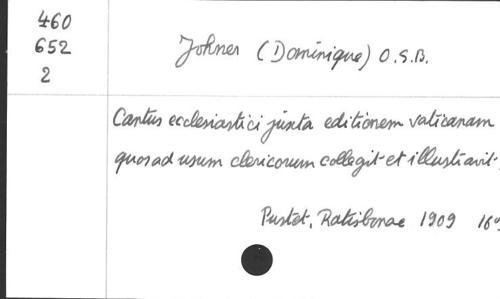 460
652
2
Johner (Dominique) O.S.B.
Cantus ecclesiastici juxta editionem vaticanam
quos ad usum clericorum collegit et illustravit.
Pustet, Ratisbonae 1909 16°